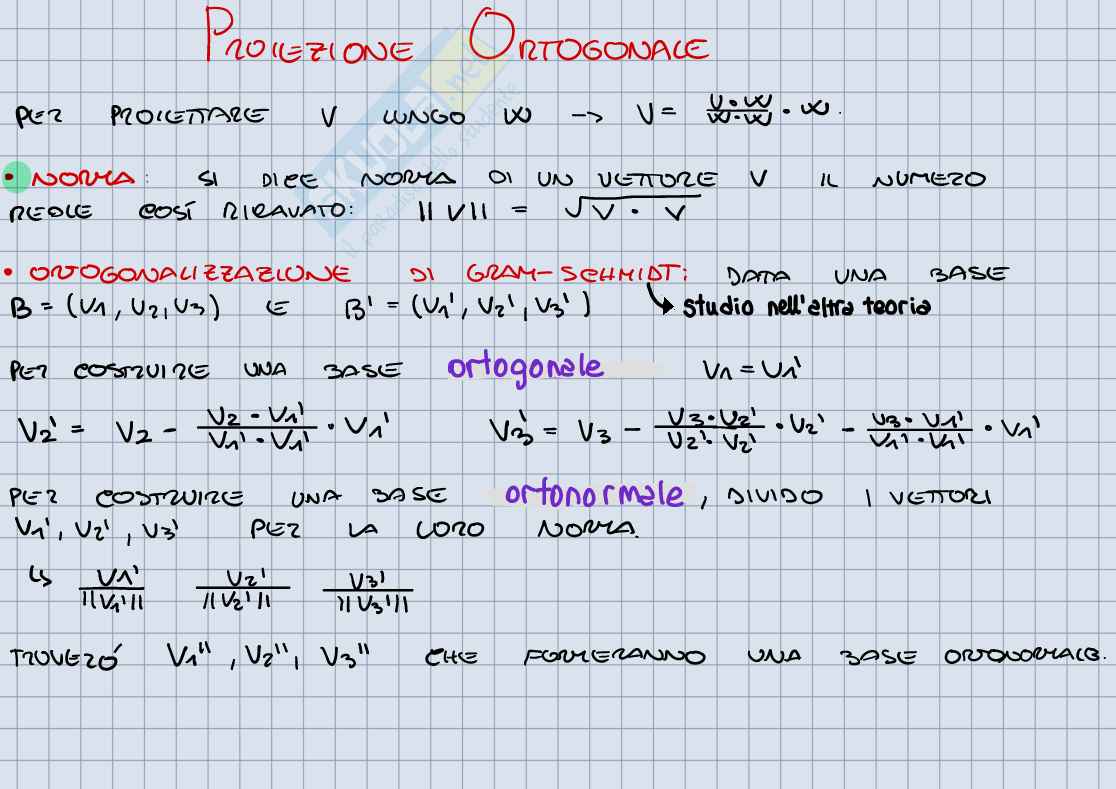 PROIEZIONE ORTOGONALE
PER PROIETTARE V LUNGO W -> V = \frac{V \cdot W}{W \cdot W} \cdot W.
• NORMA: SI DICE NORMA DI UN VETTORE V IL NUMERO
REALE COSÍ RICAVATO: ||V|| = \sqrt{V \cdot V}
• ORTOGONALIZZAZIONE DI GRAM-SCHMIDT: DATA UNA BASE
B = (V1, V2, V3) E B' = (V1', V2', V3') studio nell'altra teoria
PER COSTRUIRE UNA BASE ortogonale V1 = V1'
V2' = V2 - \frac{V2 \cdot V1'}{V1' \cdot V1'} \cdot V1' V3' = V3 - \frac{V3 \cdot V2'}{V2' \cdot V2'} \cdot V2' - \frac{V3 \cdot V1'}{V1' \cdot V1'} \cdot V1'
PER COSTRUIRE UNA BASE ortonormale, DIVIDO I VETTORI
V1', V2', V3' PER LA LORO NORMA.
↳ \frac{V1'}{||V1'||} \frac{V2'}{||V2'||} \frac{V3'}{||V3'||}
TROVERÓ V1'', V2'', V3'' CHE FORMERANNO UNA BASE ORTONORMALE.
SKUOLA.net
il paradiso dello studente